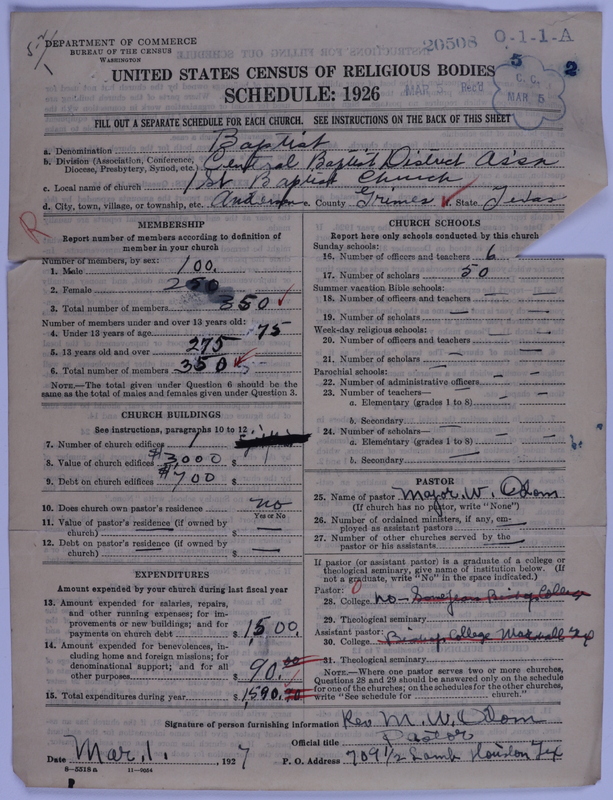 DEPARTMENT OF COMMERCE
BUREAU OF THE CENSUS
WASHINGTON
20508 0-1-1-A
MAR 5 Rec'd
5 2
C. C.
MAR 5
UNITED STATES CENSUS OF RELIGIOUS BODIES
SCHEDULE: 1926
FILL OUT A SEPARATE SCHEDULE FOR EACH CHURCH. SEE INSTRUCTIONS ON THE BACK OF THIS SHEET
a. Denomination Baptist
b. Division (Association, Conference, Diocese, Presbytery, Synod, etc.) Central Baptist District Ass'n
c. Local name of church 1st Baptist Church
d. City, town, village, or township, etc. Anderson e. County Grimes f. State Texas
R
MEMBERSHIP
Report number of members according to definition of member in your church
Number of members, by sex:
1. Male 100.
2. Female 250
3. Total number of members 350
Number of members under and over 13 years old:
4. Under 13 years of age 75
5. 13 years old and over 275
6. Total number of members 350
NOTE.—The total given under Question 6 should be the same as the total of males and females given under Question 3.
CHURCH BUILDINGS
See instructions, paragraphs 10 to 12
7. Number of church edifices 1
8. Value of church edifices $3000 $
9. Debt on church edifices $700 $
10. Does church own pastor's residence no
Yes or No
11. Value of pastor's residence (if owned by church) — $ —
12. Debt on pastor's residence (if owned by church) — $ —
EXPENDITURES
Amount expended by your church during last fiscal year
13. Amount expended for salaries, repairs, and other running expenses; for improvements or new buildings; and for payments on church debt $1500.
14. Amount expended for benevolences, including home and foreign missions; for denominational support; and for all other purposes $90.00
15. Total expenditures during year $1590.
CHURCH SCHOOLS
Report here only schools conducted by this church
Sunday schools:
16. Number of officers and teachers 6
17. Number of scholars 50
Summer vacation Bible schools:
18. Number of officers and teachers — —
19. Number of scholars — —
Week-day religious schools:
20. Number of officers and teachers — —
21. Number of scholars — —
Parochial schools:
22. Number of administrative officers — —
23. Number of teachers—
a. Elementary (grades 1 to 8) — —
b. Secondary — —
24. Number of scholars—
a. Elementary (grades 1 to 8) — —
b. Secondary — —
PASTOR
25. Name of pastor Major W. Odom
(If church has no pastor, write "None")
26. Number of ordained ministers, if any, employed as assistant pastors —
27. Number of other churches served by the pastor or his assistants —
If pastor (or assistant pastor) is a graduate of a college or theological seminary, give name of institution below. (If not a graduate, write "No" in the space indicated.)
Pastor: 0
28. College no
29. Theological seminary
Assistant pastor:
30. College Bishop College Marshall Tex
31. Theological seminary
NOTE.—Where one pastor serves two or more churches, Questions 28 and 29 should be answered only on the schedule for one of the churches; on the schedules for the other churches, write "See schedule for church."
Signature of person furnishing information Rev M. W. Odom
Official title Pastor
Date Mar. 1. 1927 P. O. Address 709 1/2 Lamb Houston Tex
8—5518a 11—9054